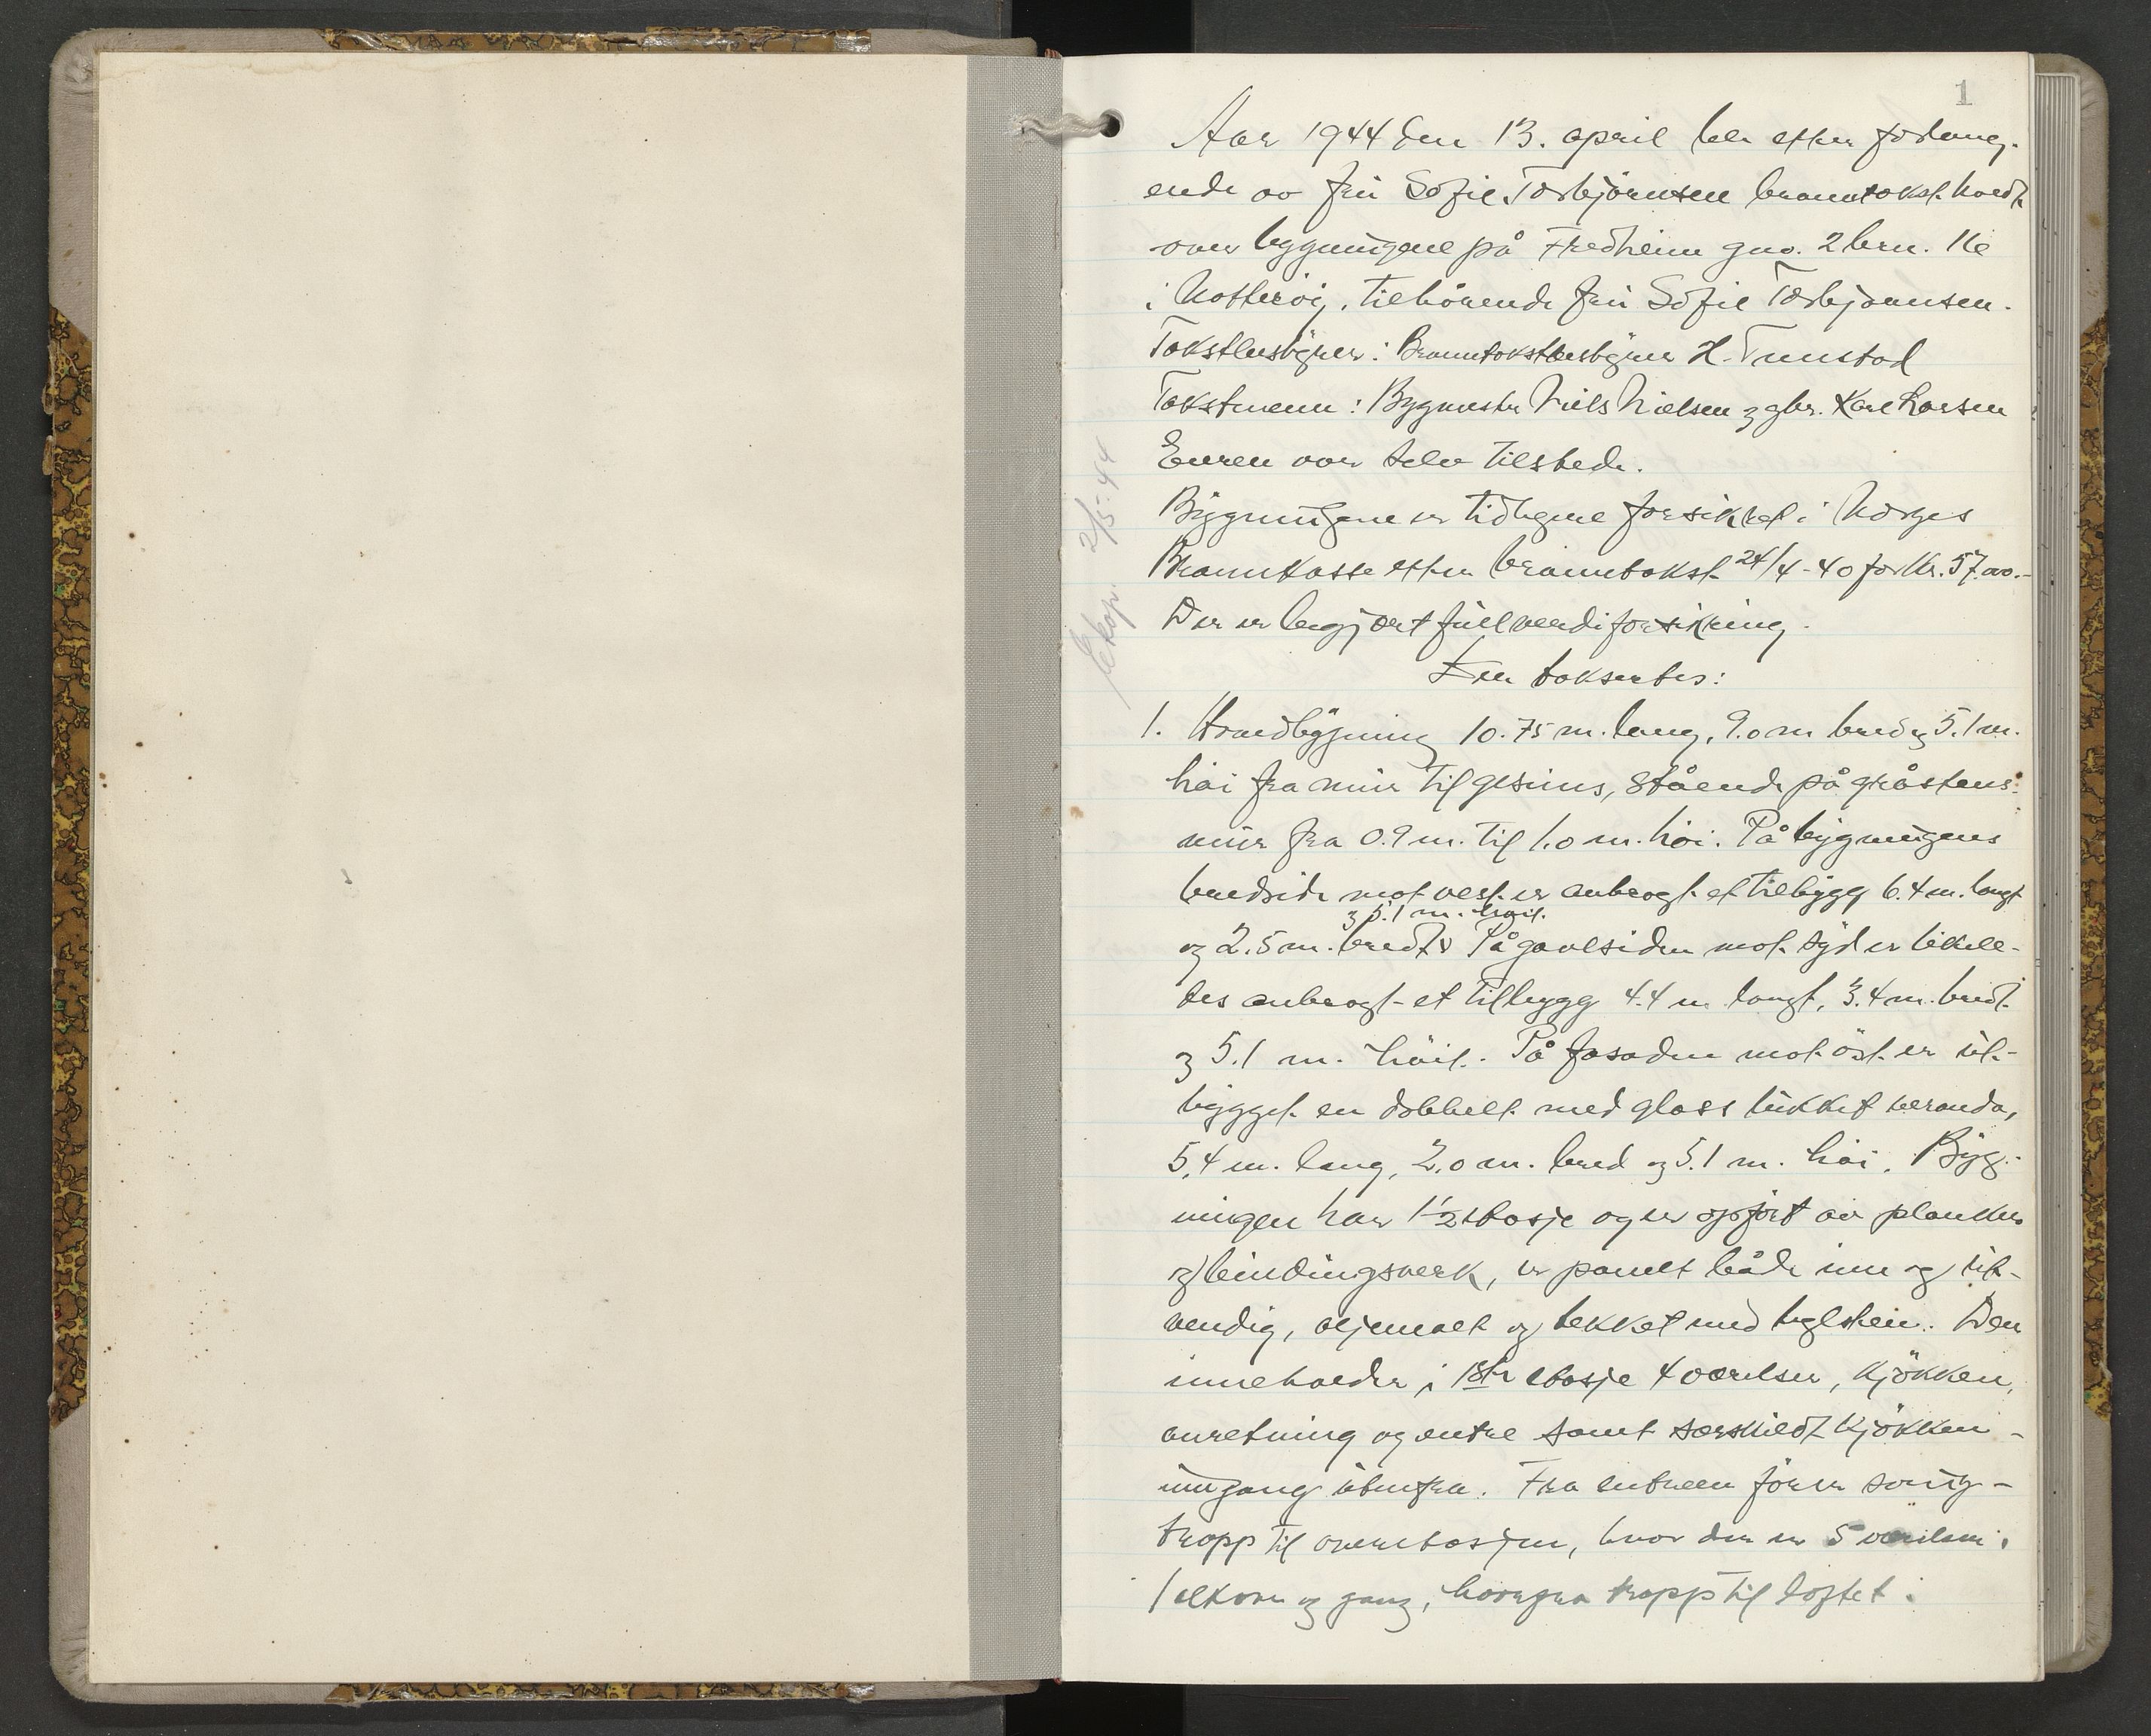 1
Aar 1944 den 13. april ble efter forlang-
ende av fru Sofie Torbjörnsen branntakst holdt
over bygningene på Fredheim gno. 2 brn. 16
i Nötteröy, tilhörende fru Sofie Torbjörnsen.
Takstbestyrer: Branntakstbestyrer H. Tunstad
Takstmenn: Bygmester Niels Nielsen og gbr. Karl Larsen
Eieren var selv tilstede.
Bygningene er tidligere forsikret i Norges
Brannkasse efter branntakst 24/4-40 for kr. 57.000.-
Der er begjært fullverdiforsikring.
Der takseertes:
1. Hovedbygning 10.75 m. lang, 9.0 m bred og 5.1 m.
höi fra mur til gesims, stående på gråstens-
mur fra 0.9 m. til 1.0 m. höi. På bygningens
bredside mot vest er anbragt et tilbygg 6.4 m. langt
og 5.1 m. höit.
og 2.5 m. bredt v På gavlsiden mot syd er likele-
des anbragt et tilbygg 4.4 m langt, 3.4 m. bredt
og 5.1 m. höit. På fasaden mot öst er ut-
bygget en dobbelt med glass lukket veranda,
5,4 m. lang, 2.0 m. bred og 5.1 m. höi. Byg-
ningen har 1 1/2 etasje og er opfört av planker
og bindingsverk, er panelt både inn og ut-
vendig, oljemalt og tekket med teglstein. Den
inneholder i 1ste etasje 4 værelser, kjökken,
anretning og entre samt særskildt kjökken-
inngang utenfra. Fra entreen förer sving-
trapp til overetasjen, hvor der er 5 værelser,
1 alkove og gang, hvorfra trapp til loftet.
Ekop. 2/5-44